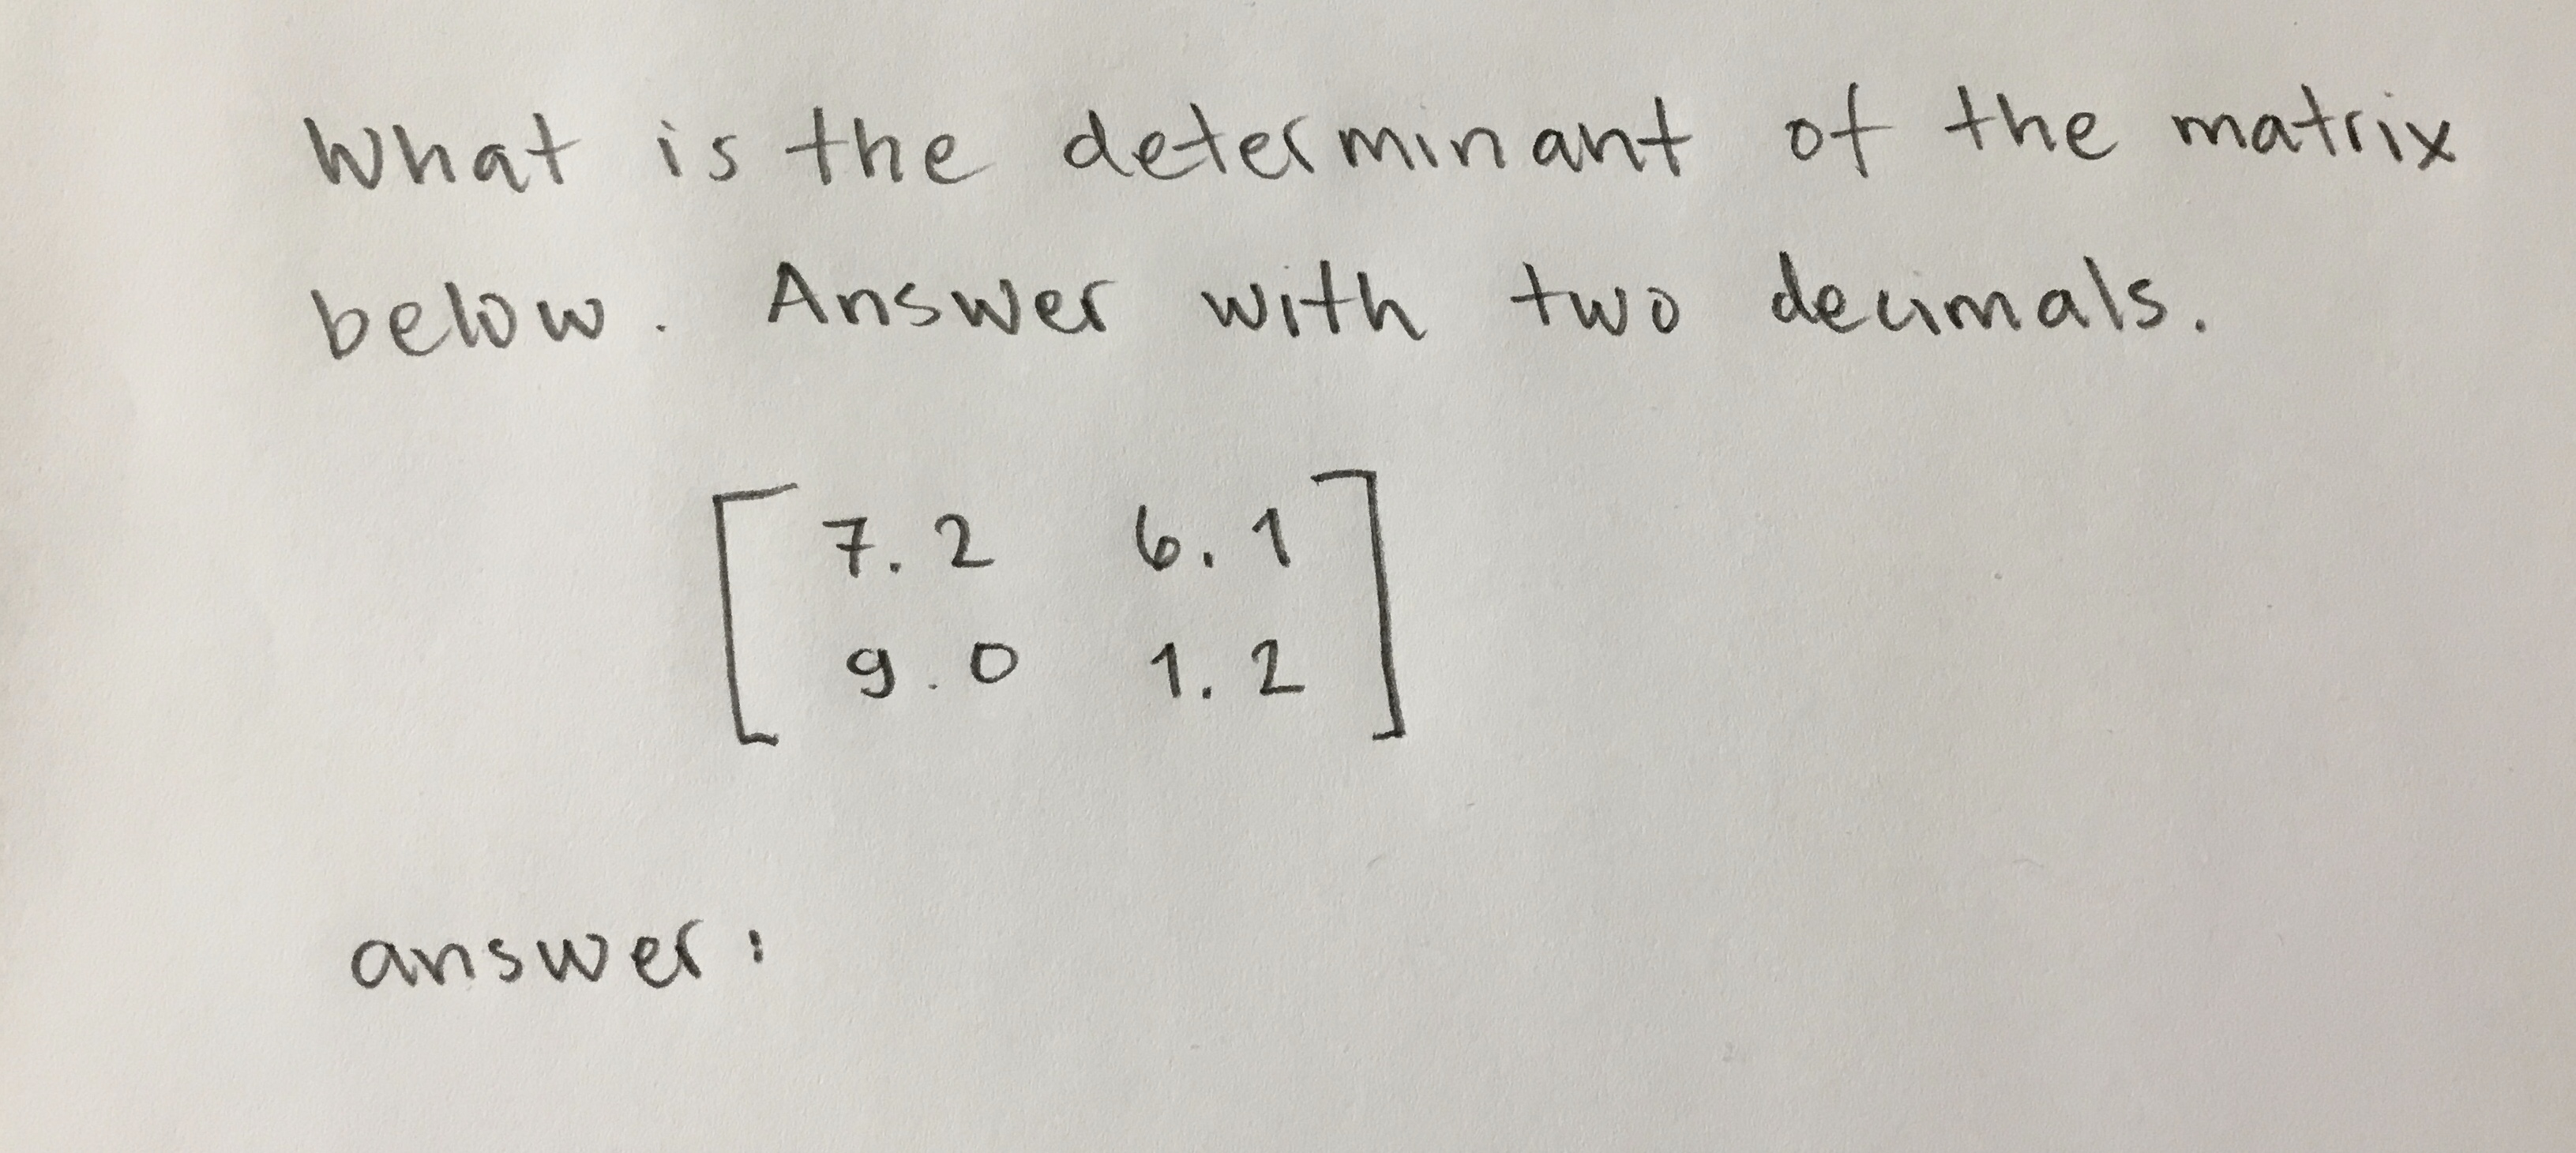 What is the determinant of the matrix
below. Answer with two decimals.
7.2 6.1
9.0 1.2
answer: